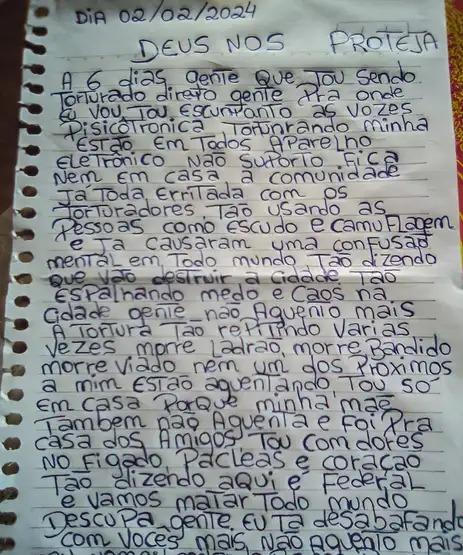 DIA 02/02/2024
DEUS NOS PROTEJA
A 6 dias gente que Tou sendo
Torturado direto gente Pra onde
Eu vou Tou Escunponto as vozes
Pisicotronica Torunrando minha
Estão Em Todos Aparelho
Eletrônico Não suporto Fica
Nem Em casa a comunidade
Ta Toda Erritada com os
Torturadores Tão usando as
Pessoas como Escudo e camuflagem
e Ja causaram uma confusão
mental em Todo mundo Tão dizendo
que vão destruir a cidade Tão
Espalhando medo e Caos na
Cidade gente não Aquenio mais
A Tortura Tão repitindo varias
vezes morre Ladrão, morre Bandido
morre viado nem um dos Proximos
a mim Estão aquentando Tou só
Em casa Porque minha mãe
Tambem não Aquenta e Foi Pra
casa dos Amigos Tou com dores
No Figado, Pacleas e coração
Tão dizendo aqui e Federal
e vamos matar Todo mundo
Descupa gente Eu Ta desabafando
com voces mais Não Aquento mais